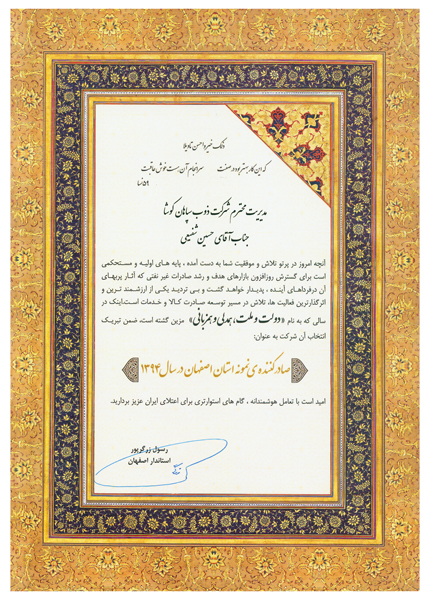 ذلک خیر و احسن تاویلا
که این کار بهتر بود در صفت سرانجام آن هست خوش عاقبت
۵۹ نسا
مدیریت محترم شرکت ذوب سپاهان کوشا
جناب آقای حسین شفیعی
آنچه امروز در پرتو تلاش و موفقیت شما به دست آمده ، پایه های اولیه و مستحکمی
است برای گسترش روزافزون بازارهای هدف و رشد صادرات غیر نفتی که آثار پربهای
آن درفرداهای آینده ، پدیدار خواهد گشت و بی تردید یکی از ارزشمند ترین و
اثرگذارترین فعالیت ها، تلاش در مسیر توسعه صادرت کالا و خدمات است.اینک در
سالی که به نام «دولت و ملت، همدلی و همزبانی» مزین گشته است، ضمن تبریک
انتخاب آن شرکت به عنوان:
صادرکننده ی نمونه استان اصفهان در سال ۱۳۹۴
امید است با تعامل هوشمندانه ، گام های استوارتری برای اعتلای ایران عزیز بردارید.
رسول زرگرپور
استاندار اصفهان